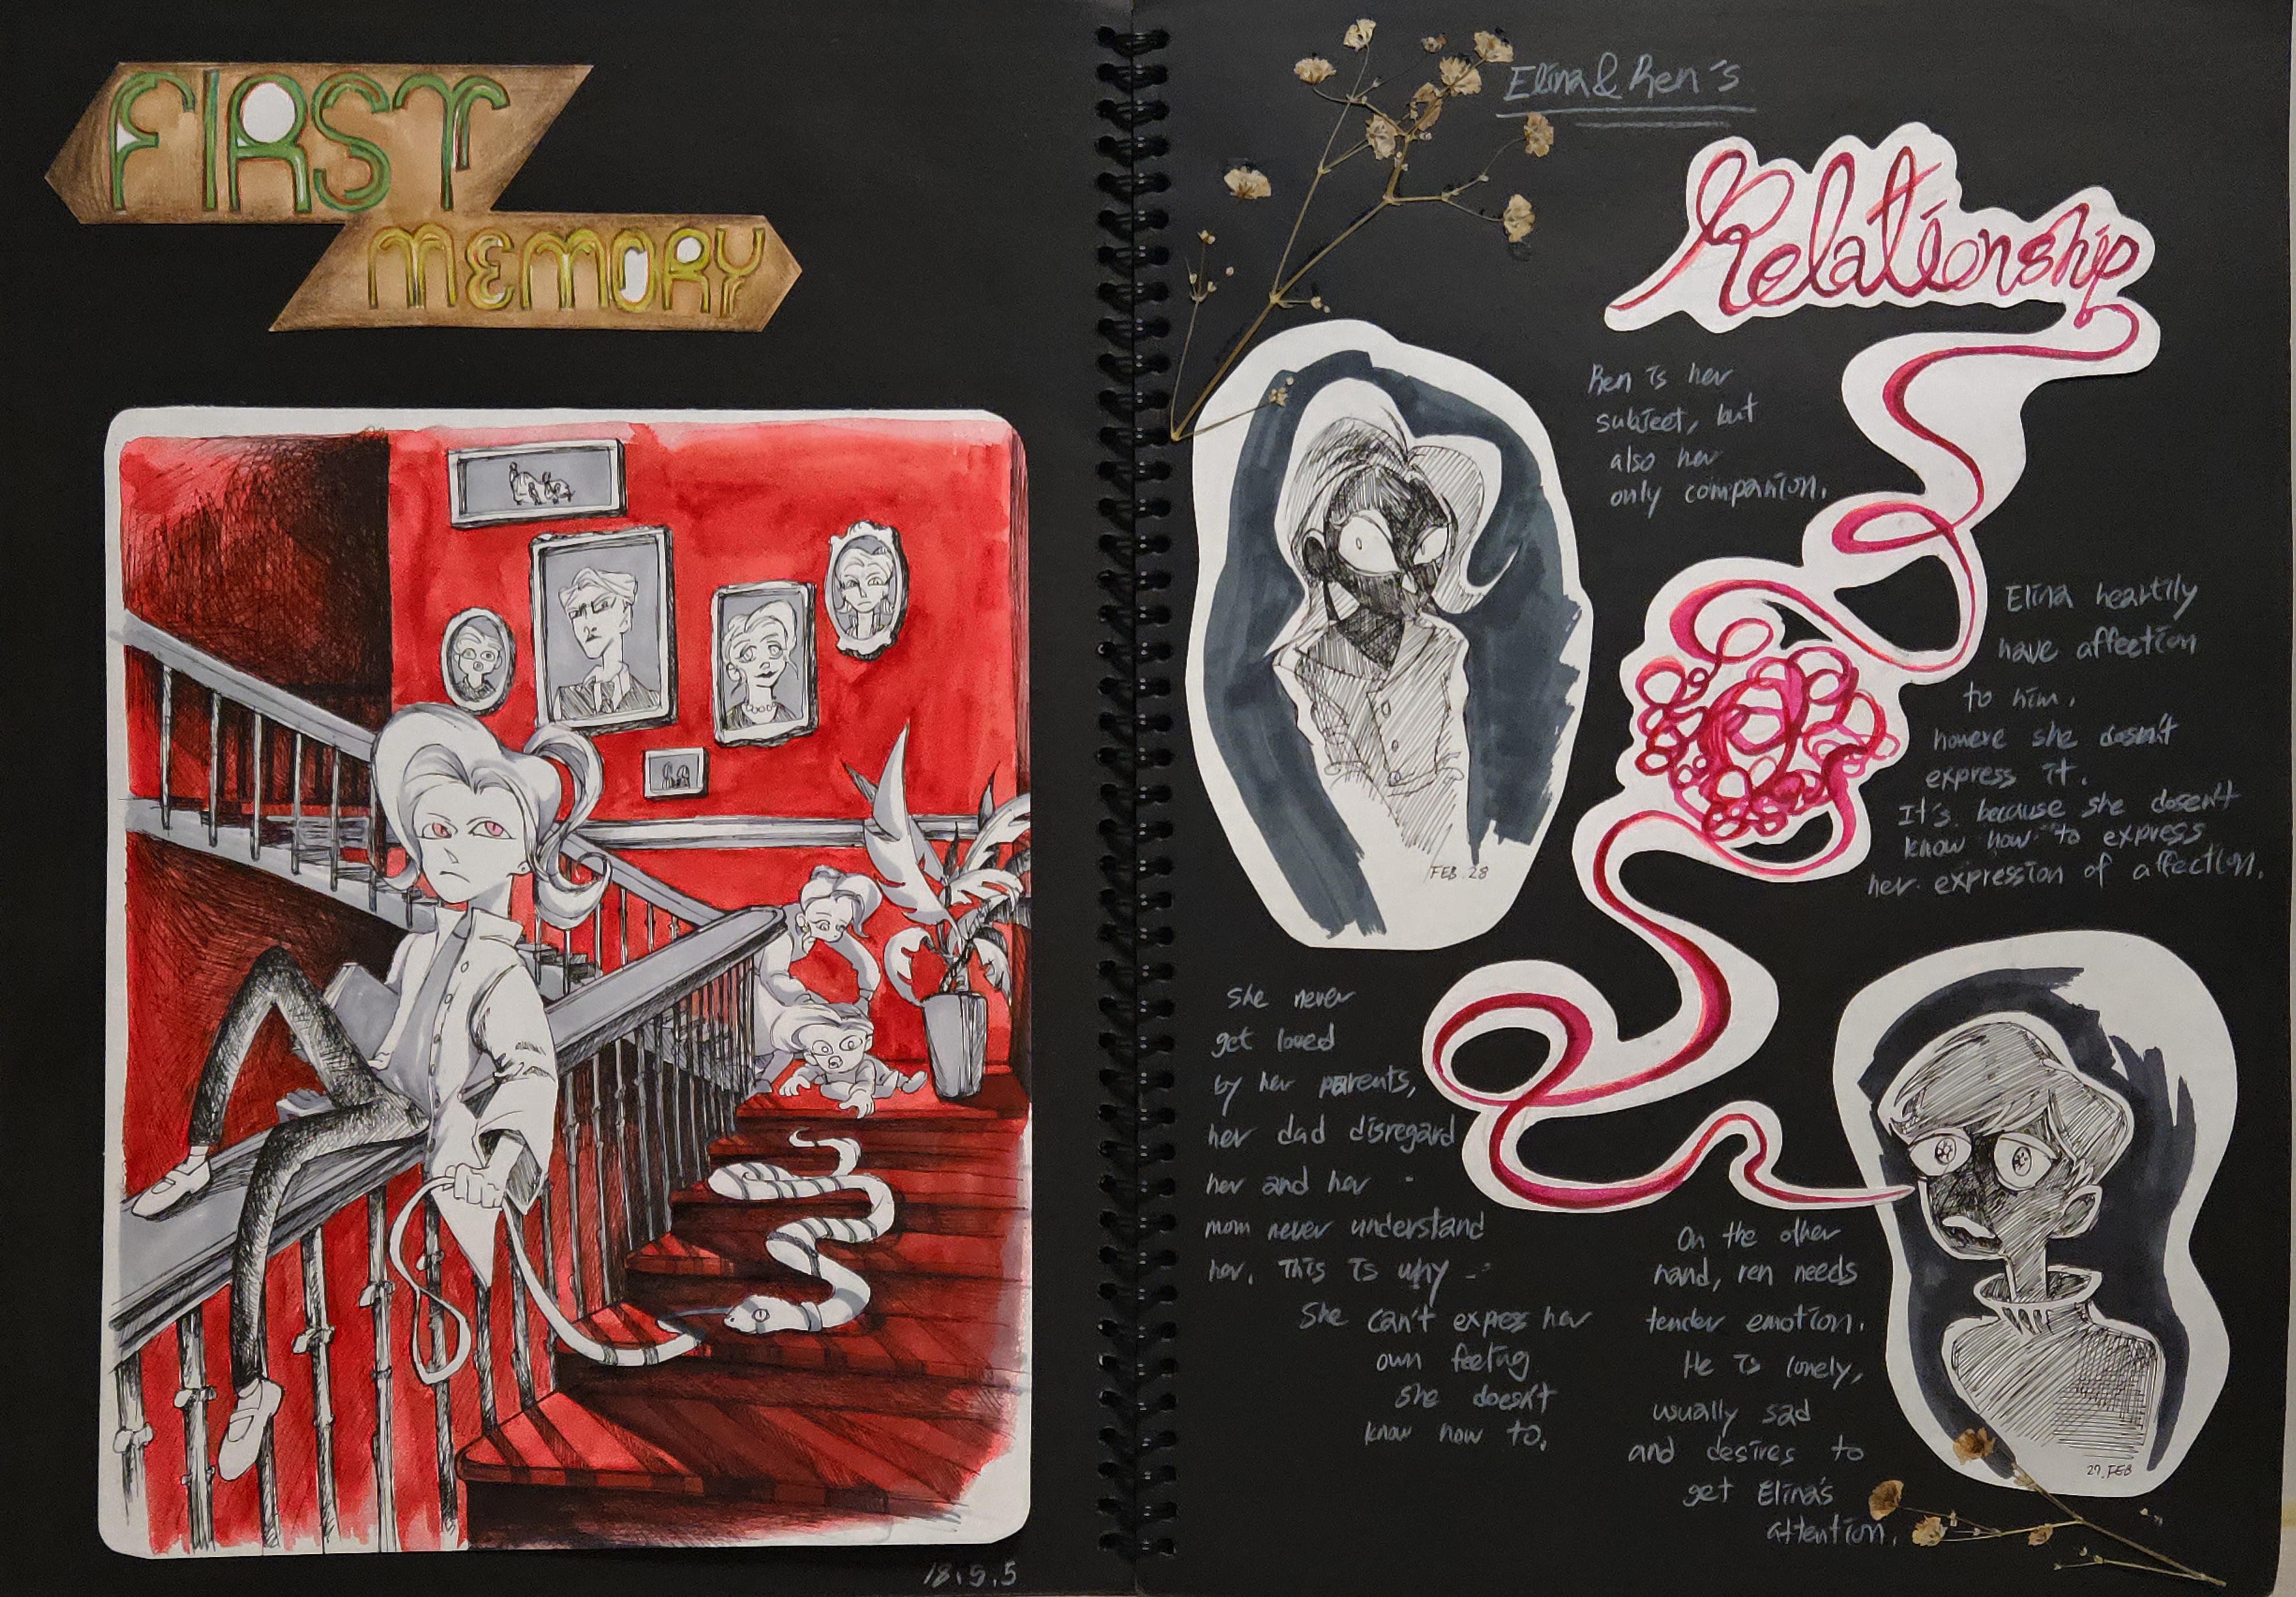 FIRST
MEMORY
18.5.5
Elina & Ren's
Relationship
Ren is her
subject, but
also her
only companion.
Elina heartily
have affection
to him.
howere she doesn't
express it.
It's because she dosen't
know how to express
her expression of affection.
FEB. 28
she never
get loved
by her parents,
her dad disregard
her and her
mom never understand
her. This is why
she can't expess her
own feeling
she doesn't
know how to.
On the other
hand, ren needs
tender emotion.
He is lonely,
usually sad
and desires to
get Elina's
attention.
27. FEB